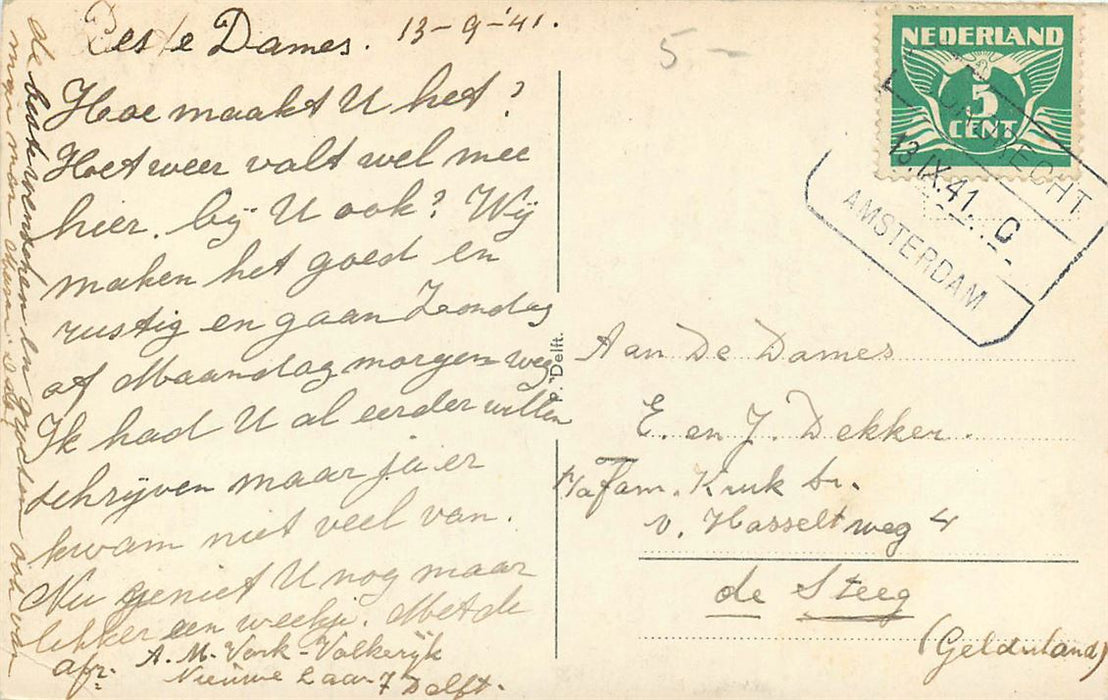 Beste Dames. 13-9-'41.
Hoe maakt U het?
Het weer valt wel mee
hier. bij U ook? Wij
maken het goed en
rustig en gaan Zondag
of Maandagmorgen weg
Ik had U al eerder willen
schrijven maar ja er
kwam niet veel van.
Nu geniet U nog maar
lekker een weekje. Met de
de beste wenschen en groeten ook van
mijn man
afz: A. M. Vork-Volkerijk
Nieuwe Laan 7 Delft.
5.-
P. Delft.
NEDERLAND
5
CENT
DORDRECHT
13.IX.41. C
AMSTERDAM
Aan De Dames
E. en J. Dekker.
Kruk
v. Hasseltweg 4
de Steeg
(Gelderland)